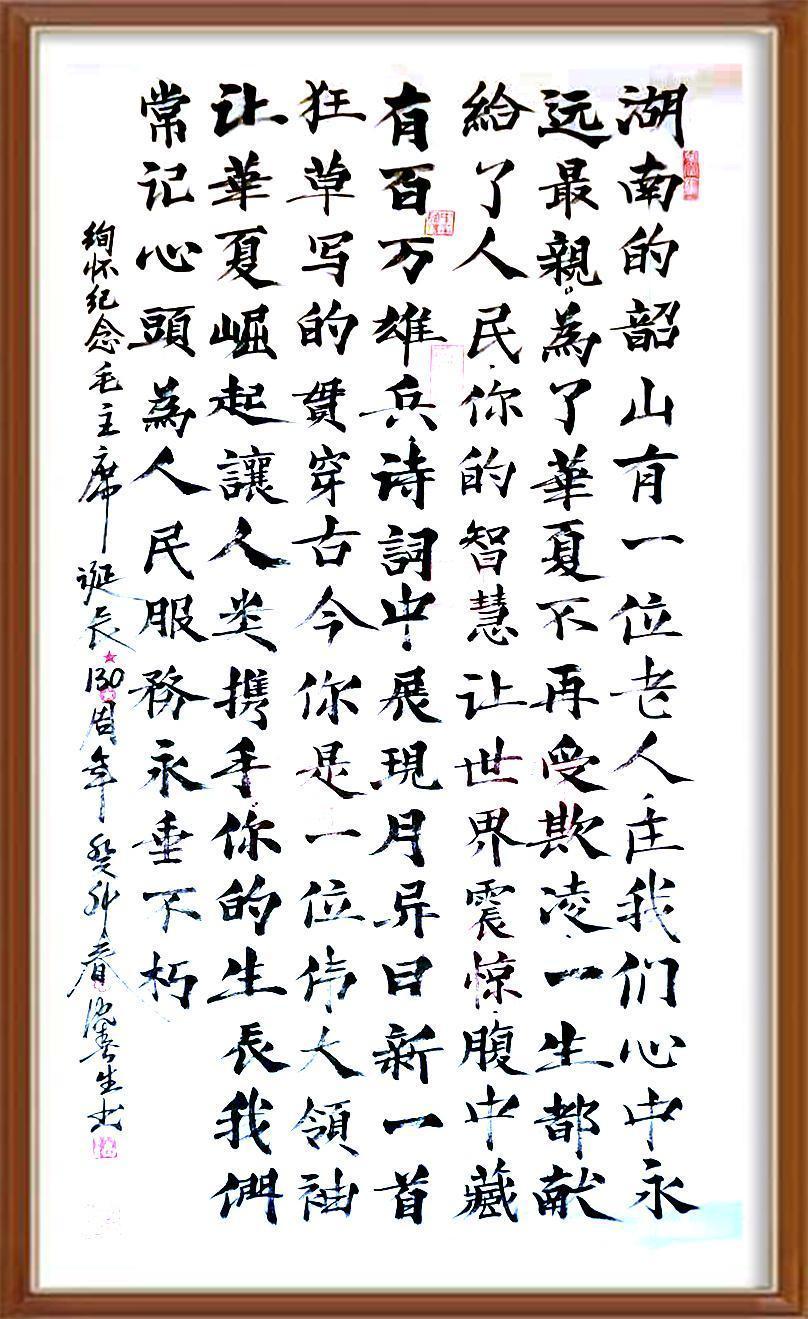 湖南的韶山有一位老人在我们心中永
远最親為了華夏不再受欺凌一生都献
給了人民你的智慧让世界震惊腹中藏
有百万雄兵诗詞中展現月异日新一首
狂草写的贯穿古今你是一位伟大領袖
让華夏崛起讓人类携手你的生長我們
常记心頭為人民服務永垂不朽
绚怀纪念毛主席诞辰130周年癸卯春